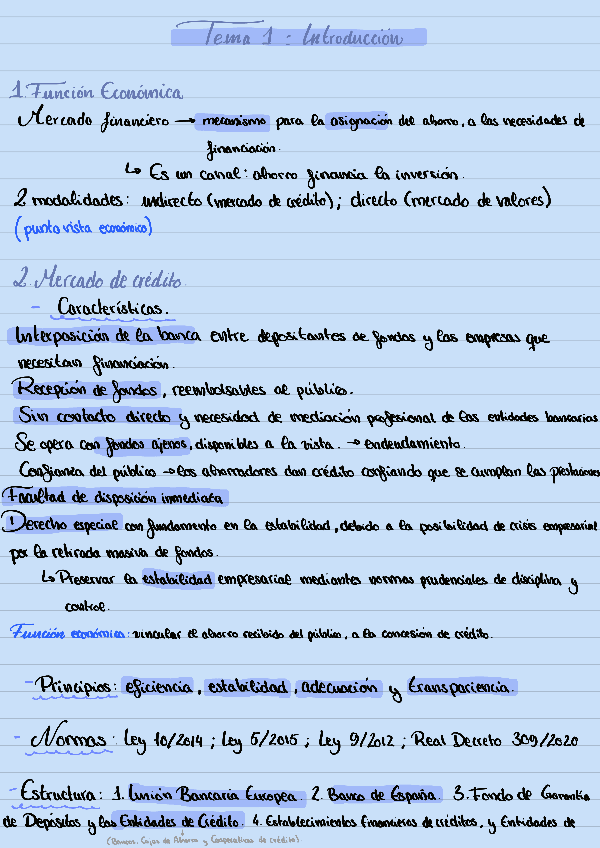 Tema 1 : Introducción
1. Función Económica
Mercado financiero → mecanismo para la asignación del ahorro, a las necesidades de
financiación.
↳ Es un canal: ahorro financia la inversión.
2 modalidades: indirecto (mercado de crédito); directo (mercado de valores)
(punto vista económico)
2. Mercado de crédito.
- Características.
Interposición de la banca entre depositantes de fondos y las empresas que
necesitan financiación.
Recepción de fondos, reembolsables al público.
Sin contacto directo y necesidad de mediación profesional de las entidades bancarias
Se opera con fondos ajenos, disponibles a la vista. → endeudamiento.
Confianza del público → los ahorradores dan crédito confiando que se cumplan las prestaciones
Facultad de disposición inmediata
Derecho especial con fundamento en la estabilidad, debido a la posibilidad de crisis empresarial
por la retirada masiva de fondos.
↳ Preservar la estabilidad empresarial mediantes normas prudenciales de disciplina y
control.
Función económica: vincular el ahorro recibido del público, a la concesión de crédito.
- Principios: eficiencia, estabilidad, adecuación y transparencia.
- Normas: Ley 10/2014 ; Ley 5/2015 ; Ley 9/2012 ; Real Decreto 309/2020
- Estructura: 1. Unión Bancaria Europea. 2. Banco de España. 3. Fondo de Garantía
de Depósitos y las Entidades de Crédito. 4. Establecimientos financieros de créditos, y Entidades de
(Bancos, Cajas de Ahorro y Cooperativas de crédito)